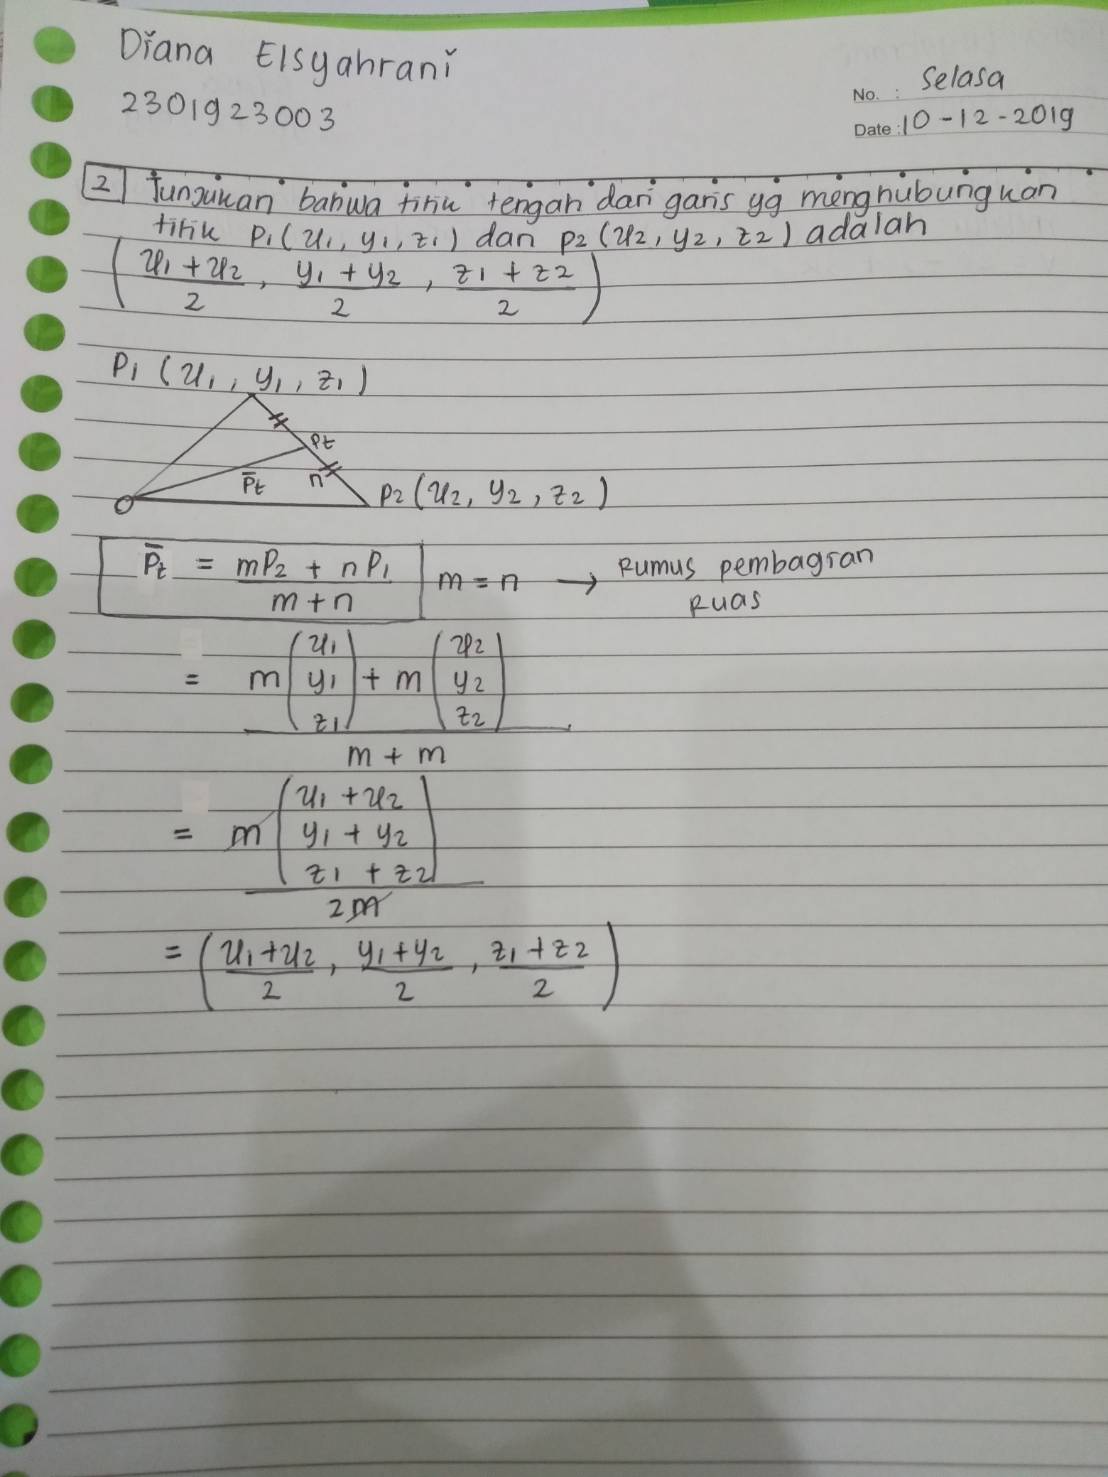 Diana Elsyahrani
2301923003
No. : Selasa
Date : 10-12-2019
2 Tunjukan bahwa titik tengah dari garis yg menghubungkan
titik P1(x1, y1, z1) dan P2(x2, y2, z2) adalah
(x1 + x2 / 2, y1 + y2 / 2, z1 + z2 / 2)
P1 (x1, y1, z1)
Pt
P̅t n
O P2 (x2, y2, z2)
P̅t = mP2 + nP1 / m + n m = n → Rumus pembagian
Ruas
= m (x1 y1 z1) + m (x2 y2 z2) / m + m
= m (x1 + x2 y1 + y2 z1 + z2) / 2m
= (x1 + x2 / 2, y1 + y2 / 2, z1 + z2 / 2)